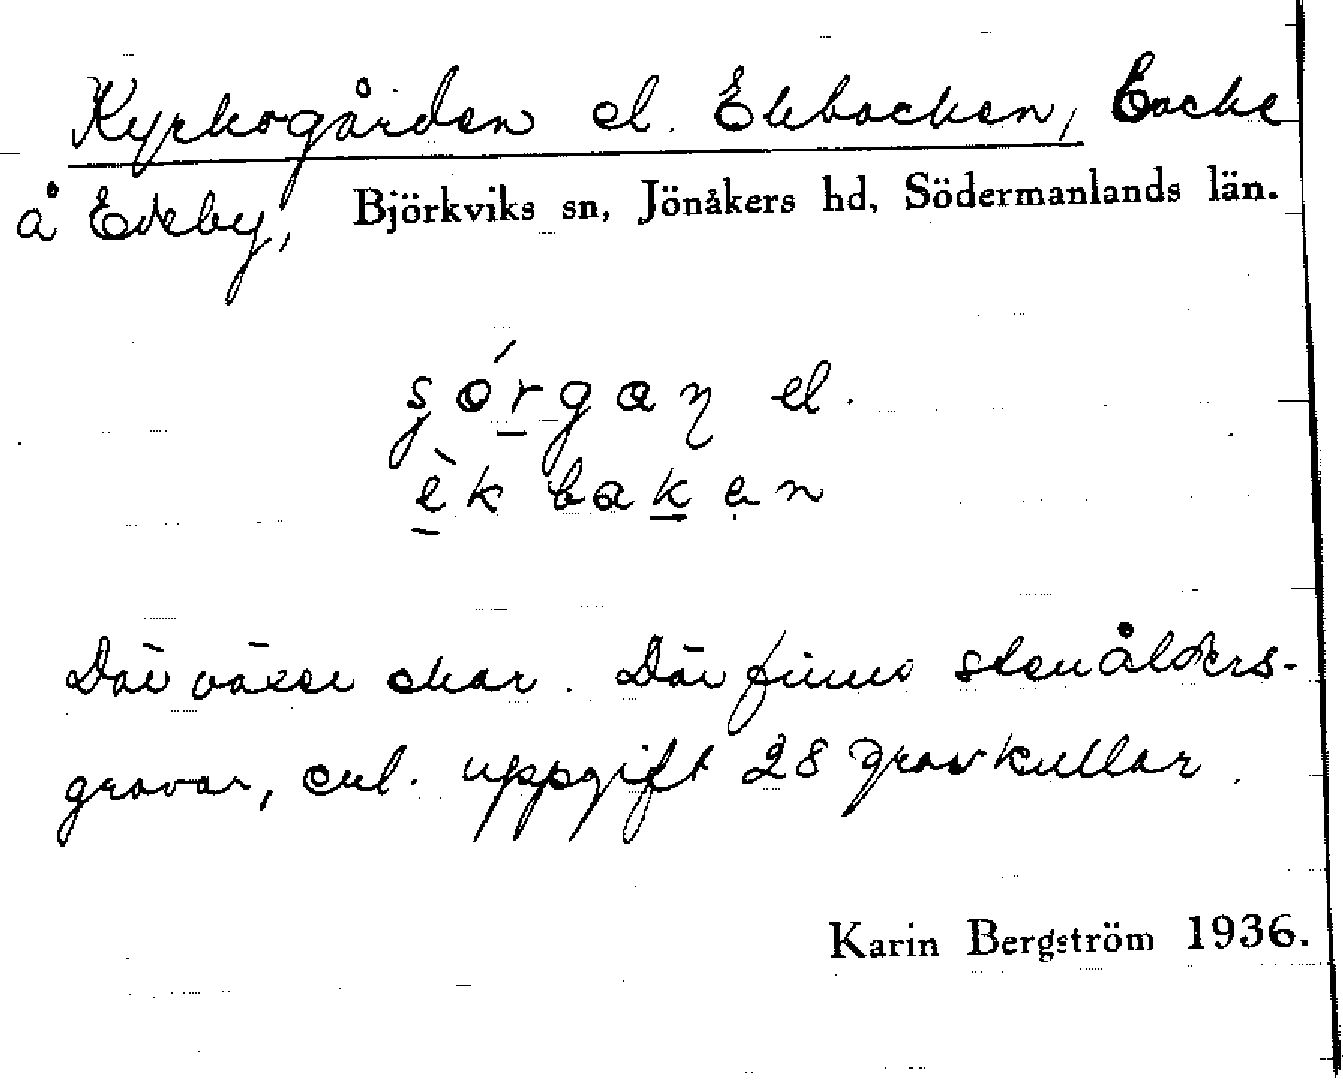 Kyrkogården el. Ekbacken, Backe
å Edeby, Björkviks sn, Jönåkers hd, Södermanlands län.
ʂórgaɳ el.
èk bakan
Där växer ekar. Där finns stenålders-
gravar, enl. uppgift 28 gravkullar.
Karin Bergström 1936.